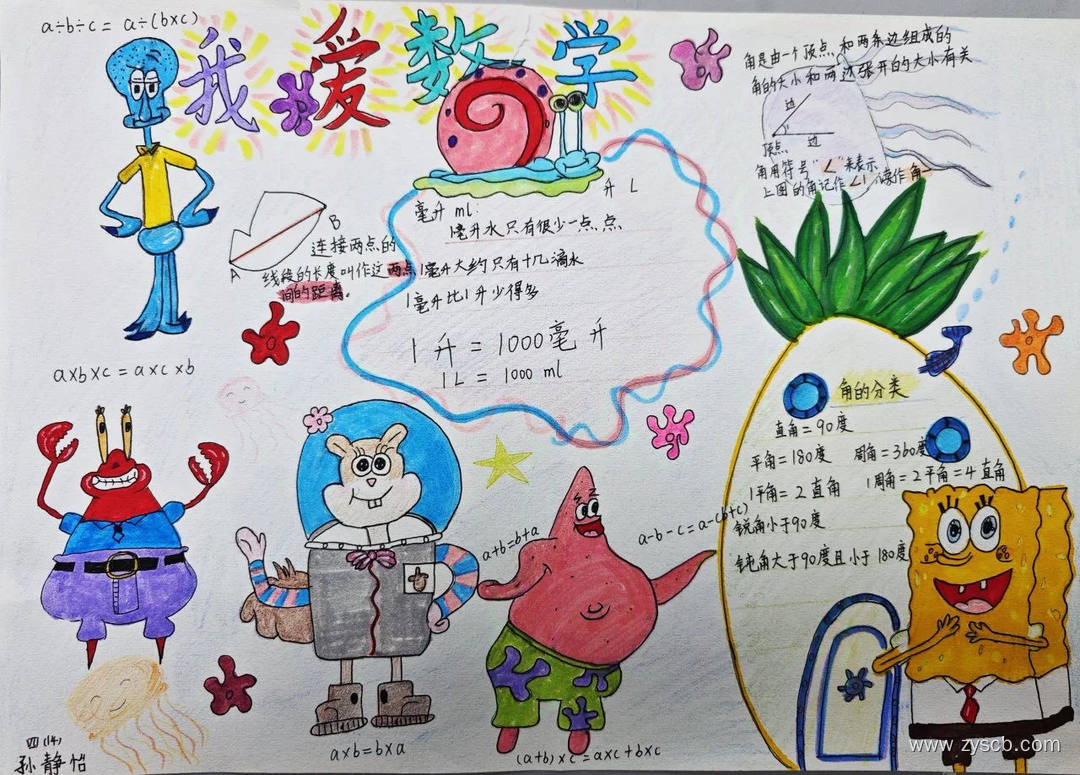 a÷b÷c = a÷(b×c)
我爱数学
角是由一个顶点和两条边组成的
角的大小和两边张开的大小有关
边
边
顶点
角用符号“∠”来表示
上图的角记作∠1，读作角一
A
B
连接两点的
线段的长度叫作这两点
间的距离。
升 L
毫升 ml:
1毫升水只有很少一点点
1毫升大约只有十几滴水
1毫升比1升少得多
1升 = 1000毫升
1L = 1000 ml
a×b×c = a×c×b
角的分类
直角=90度
平角=180度 周角=360度
1平角=2直角 1周角=2平角=4直角
锐角小于90度
钝角大于90度且小于180度
a+b=b+a
a-b-c=a-(b+c)
a×b=b×a
(a+b)×c=a×c+b×c
四(14)
孙静怡
www.zyscb.com